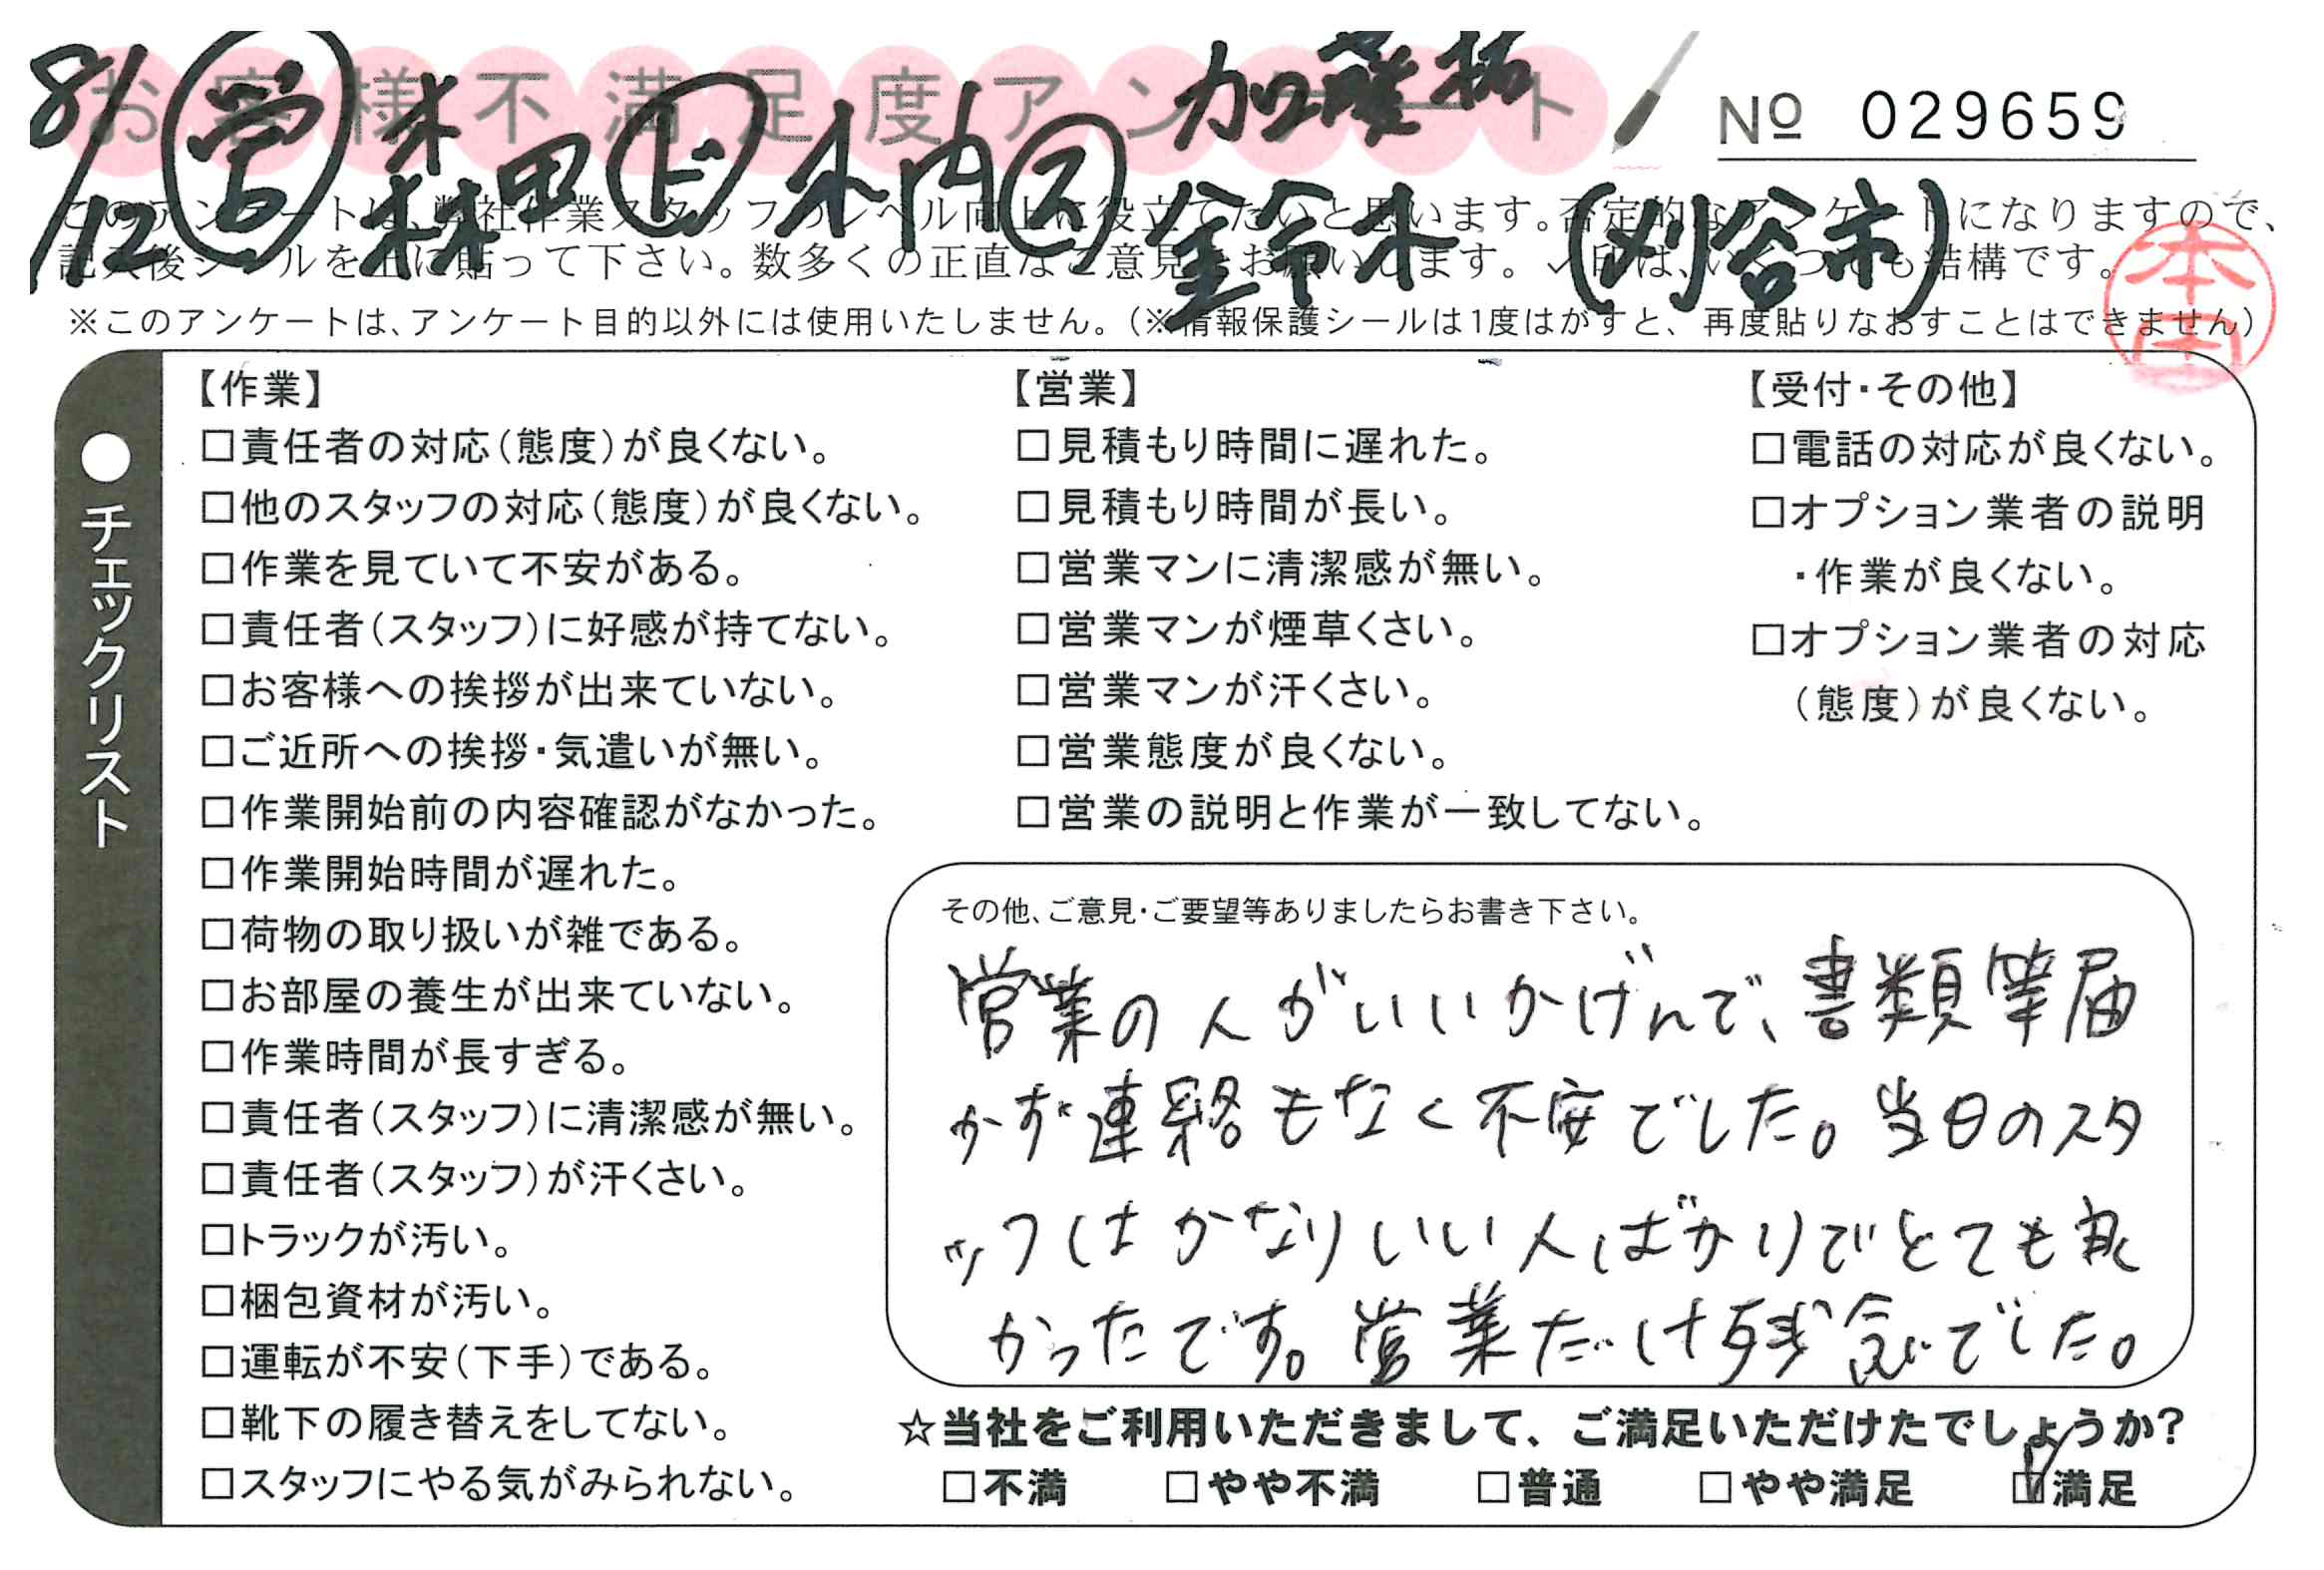 お客様不満足度アンケート
№ 029659
8/12 営 森田 ド 木内 ス 加藤拓
鈴木 (刈谷市)
このアンケートは、弊社作業スタッフのレベル向上に役立てたいと思います。否定的なアンケートになりますので、
記入後シールを上に貼って下さい。数多くの正直なご意見をお願いします。✓印は、いくつでも結構です。
※このアンケートは、アンケート目的以外には使用いたしません。(※情報保護シールは1度はがすと、再度貼りなおすことはできません)
●チェックリスト
【作業】
□責任者の対応(態度)が良くない。
□他のスタッフの対応(態度)が良くない。
□作業を見ていて不安がある。
□責任者(スタッフ)に好感が持てない。
□お客様への挨拶が出来ていない。
□ご近所への挨拶・気遣いが無い。
□作業開始前の内容確認がなかった。
□作業開始時間が遅れた。
□荷物の取り扱いが雑である。
□お部屋の養生が出来ていない。
□作業時間が長すぎる。
□責任者(スタッフ)に清潔感が無い。
□責任者(スタッフ)が汗くさい。
□トラックが汚い。
□梱包資材が汚い。
□運転が不安(下手)である。
□靴下の履き替えをしてない。
□スタッフにやる気がみられない。
【営業】
□見積もり時間に遅れた。
□見積もり時間が長い。
□営業マンに清潔感が無い。
□営業マンが煙草くさい。
□営業マンが汗くさい。
□営業態度が良くない。
□営業の説明と作業が一致してない。
【受付・その他】
□電話の対応が良くない。
□オプション業者の説明
・作業が良くない。
□オプション業者の対応
(態度)が良くない。
その他、ご意見・ご要望等ありましたらお書き下さい。
営業の人がいいかげんで、書類等届
かず連絡もなく不安でした。当日のスタ
ッフはかなりいい人ばかりでとても良
かったです。営業だけ残念でした。
☆当社をご利用いただきまして、ご満足いただけたでしょうか?
□不満 □やや不満 □普通 □やや満足 ☑満足